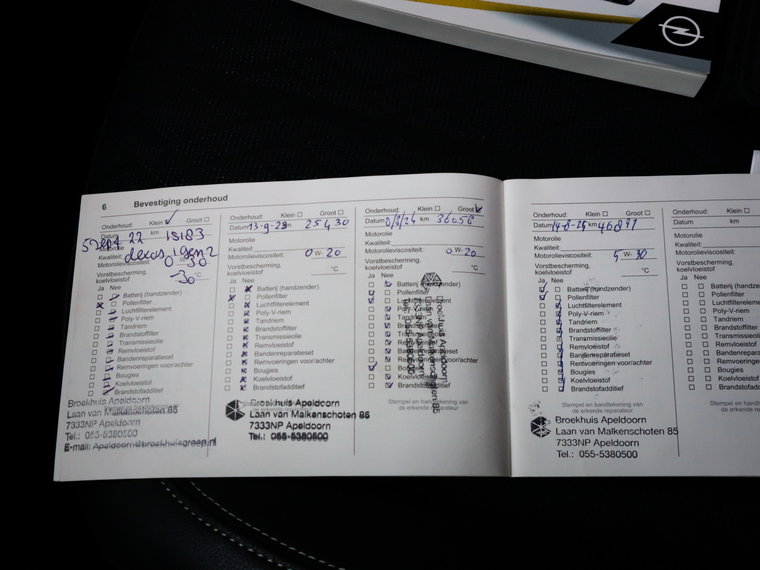 6 Bevestiging onderhoud
Onderhoud: Klein ☐ Groot ☐
Datum 5 sept 22 km 18183
Motorolie
Kwaliteit: dexos 1 gen 2
Motorolieviscositeit: 0 30
Vorstbescherming,
koelvloeistof -30 °C
Ja Nee
Batterij (handzender)
Pollenfilter
Luchtfilterelement
Poly-V-riem
Tandriem
Brandstoffilter
Transmissieolie
Remvloeistof
Bandenreparatieset
Remvoeringen voor/achter
Bougies
Koelvloeistof
Brandstofadditief
Broekhuis Apeldoorn
Laan van Malkenschoten 85
7333NP Apeldoorn
Tel.: 055-5380500
E-mail: Apeldoorn@broekhuisgroep.nl
Onderhoud: Klein ☐ Groot ☐
Datum 13-9-23 km 25430
Motorolie
Kwaliteit:
Motorolieviscositeit: 0 W- 20
Vorstbescherming,
koelvloeistof °C
Ja Nee
Batterij (handzender)
Pollenfilter
Luchtfilterelement
Poly-V-riem
Tandriem
Brandstoffilter
Transmissieolie
Remvloeistof
Bandenreparatieset
Remvoeringen voor/achter
Bougies
Koelvloeistof
Brandstofadditief
Broekhuis Apeldoorn
Laan van Malkenschoten 85
7333NP Apeldoorn
Tel.: 055-5380500
Onderhoud: Klein ☐ Groot
Datum km 36056
Motorolie
Kwaliteit:
Motorolieviscositeit: 0 W- 20
Vorstbescherming,
koelvloeistof °C
Ja Nee
Batterij (handzender)
Pollenfilter
Koelvloeistof
Brandstofadditief
Stempel en handtekening van
de erkende reparateur
Onderhoud: Klein ☐ Groot ☐
Datum 14-8-25 km 46897
Motorolie
Kwaliteit:
Motorolieviscositeit: 5 W- 30
Vorstbescherming,
koelvloeistof °C
Ja Nee
Batterij (handzender)
Pollenfilter
Luchtfilterelement
Poly-V-riem
Tandriem
Brandstoffilter
Transmissieolie
Remvloeistof
Bandenreparatieset
Remvoeringen voor/achter
Bougies
Koelvloeistof
Brandstofadditief
Stempel en handtekening van
de erkende reparateur
Broekhuis Apeldoorn
Laan van Malkenschoten 85
7333NP Apeldoorn
Tel.: 055-5380500
Onderhoud: Klein
Datum km
Motorolie
Kwaliteit:
Motorolieviscositeit:
Vorstbescherming,
koelvloeistof
Ja Nee
Pollenfilter
Poly-V-riem
Tandriem
Brandstoffilter
Transmissieolie
Remvloeistof
Bougies
Koelvloeistof